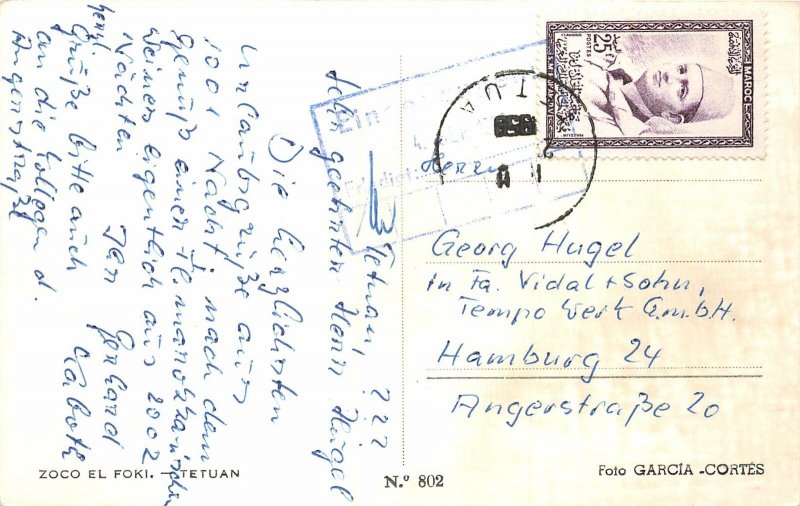 Tetuan, ???
Sehr geehrter Herr Hugel
Die herzlichsten
Urlaubsgrüße aus
1001 Nacht, nach dem
Genuß einer Fl. marokkanischen
Weines eigentlich aus 2002
Nächten Ihr Gerhard
Grüße bitte auch
an die Kollegen d.
Angerstraße
Eing
TETUAN
MAROC
25
POSTES
Herrn
Georg Hugel
in Fa. Vidal + Sohn,
Tempo Werk G.m.b.H.
Hamburg 24
Angerstraße 20
ZOCO EL FOKI. — TETUAN
N.º 802
Foto GARCÍA-CORTÉS